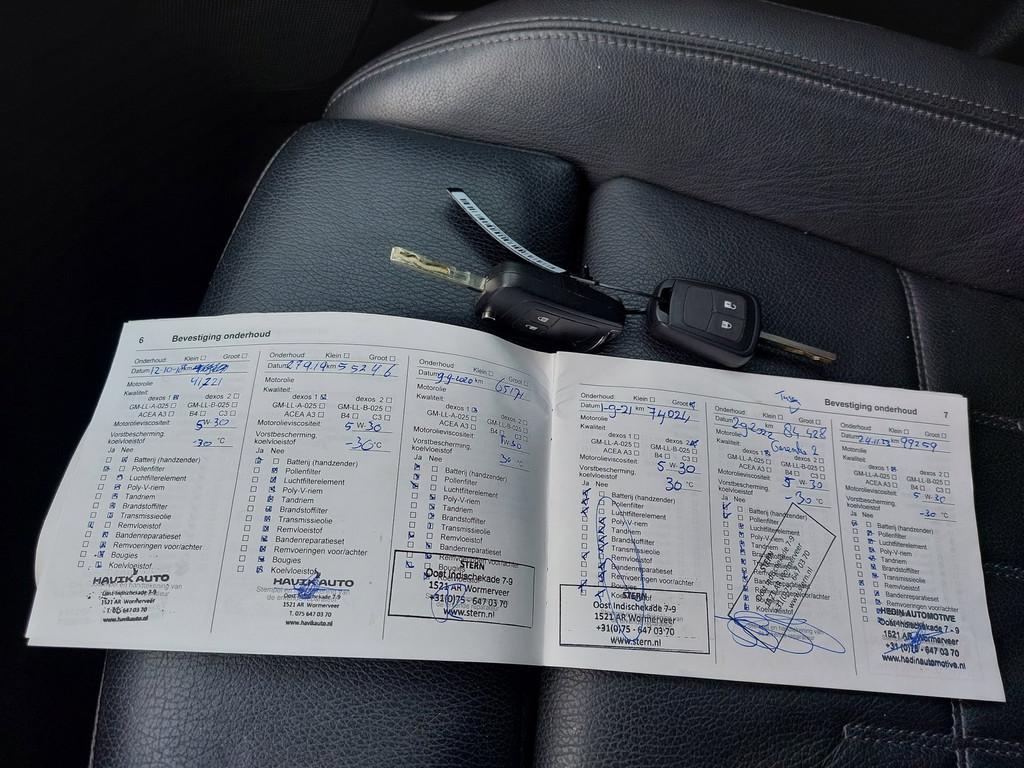 6 Bevestiging onderhoud
Onderhoud: Klein ☐ Groot ☐
Datum 12-10-18 km
41221
Motorolie
Kwaliteit:
dexos 1 ☒ dexos 2 ☐
GM-LL-A-025 ☐ GM-LL-B-025 ☐
ACEA A3 ☐ B4 ☐ C3 ☐
Motorolieviscositeit: 5 W-30
Vorstbescherming,
koelvloeistof -30 °C
Ja Nee
Batterij (handzender)
Pollenfilter
Luchtfilterelement
Poly-V-riem
Tandriem
Brandstoffilter
Transmissieolie
Remvloeistof
Bandenreparatieset
Remvoeringen voor/achter
Bougies
Koelvloeistof
HAVIK AUTO
Oost Indischekade 7-9
1521 AR Wormerveer
T. 075 647 03 70
www.havikauto.nl
Onderhoud: Klein ☐ Groot ☐
Datum 2 7 9.19 km 55246
Motorolie
Kwaliteit:
dexos 1 ☒ dexos 2 ☐
GM-LL-A-025 ☐ GM-LL-B-025 ☐
ACEA A3 ☐ B4 ☐ C3 ☐
Motorolieviscositeit: 5 W-30
Vorstbescherming,
koelvloeistof -30 °C
Ja Nee
Batterij (handzender)
Pollenfilter
Luchtfilterelement
Poly-V-riem
Tandriem
Brandstoffilter
Transmissieolie
Remvloeistof
Bandenreparatieset
Remvoeringen voor/achter
Bougies
Koelvloeistof
HAVIK AUTO
Oost Indischekade 7-9
1521 AR Wormerveer
T. 075 647 03 70
www.havikauto.nl
Onderhoud: Klein ☐ Groot ☐
Datum 9-9-2020 km
Motorolie
Kwaliteit:
dexos 1 dexos 2 ☐
GM-LL-A-025 ☐ GM-LL-B-025 ☐
ACEA A3 ☐ B4 ☐ C3 ☐
Motorolieviscositeit: W-30
Vorstbescherming,
koelvloeistof 30 °C
Ja Nee
Batterij (handzender)
Pollenfilter
Luchtfilterelement
Poly-V-riem
Tandriem
Brandstoffilter
Transmissieolie
Remvloeistof
Bandenreparatieset
Remvoeringen voor/achter
Bougies
STERN
Oost Indischekade 7-9
1521 AR Wormerveer
+31(0)75 - 647 03 70
www.stern.nl
Bevestiging onderhoud 7
Onderhoud: Klein ☐ Groot ☐
Datum 1-9-21 km 74024
Motorolie
Kwaliteit:
dexos 1 ☐ dexos 2
GM-LL-A-025 ☐ GM-LL-B-025 ☐
ACEA A3 ☐ B4 ☐ C3 ☐
Motorolieviscositeit: 5 W-30
Vorstbescherming,
koelvloeistof 30 °C
Ja Nee
Batterij (handzender)
Pollenfilter
Luchtfilterelement
Poly-V-riem
Tandriem
Brandstoffilter
Transmissieolie
Remvloeistof
Bandenreparatieset
Remvoeringen voor/achter
Bougies
STERN
Oost Indischekade 7-9
1521 AR Wormerveer
+31(0)75 - 647 03 70
www.stern.nl
Onderhoud: Klein ☐ Groot ☐
Datum km 84.428
Motorolie
Kwaliteit:
dexos 1 dexos 2
GM-LL-A-025 ☐ GM-LL-B-025 ☐
ACEA A3 ☐ B4 ☐ C3 ☐
Motorolieviscositeit: 5 W-30
Vorstbescherming,
koelvloeistof -30 °C
Ja Nee
Batterij (handzender)
Pollenfilter
Luchtfilterelement
Poly-V-riem
Tandriem
Onderhoud: Klein ☐ Groot ☐
Datum km 99259
Motorolie
Kwaliteit:
dexos 1 dexos 2 ☐
GM-LL-A-025 ☐ GM-LL-B-025 ☐
ACEA A3 ☐ B4 ☐ C3 ☐
Motorolieviscositeit: 5 W-30
Vorstbescherming,
koelvloeistof -30 °C
Ja Nee
Batterij (handzender)
Pollenfilter
Luchtfilterelement
Poly-V-riem
Tandriem
Brandstoffilter
Transmissieolie
Remvloeistof
Bandenreparatieset
Remvoeringen voor/achter
Bougies
HEDIN AUTOMOTIVE
Oost Indischekade 7 - 9
1521 AR Wormerveer
+31 (0)75 - 647 03 70
www.hedinautomotive.nl